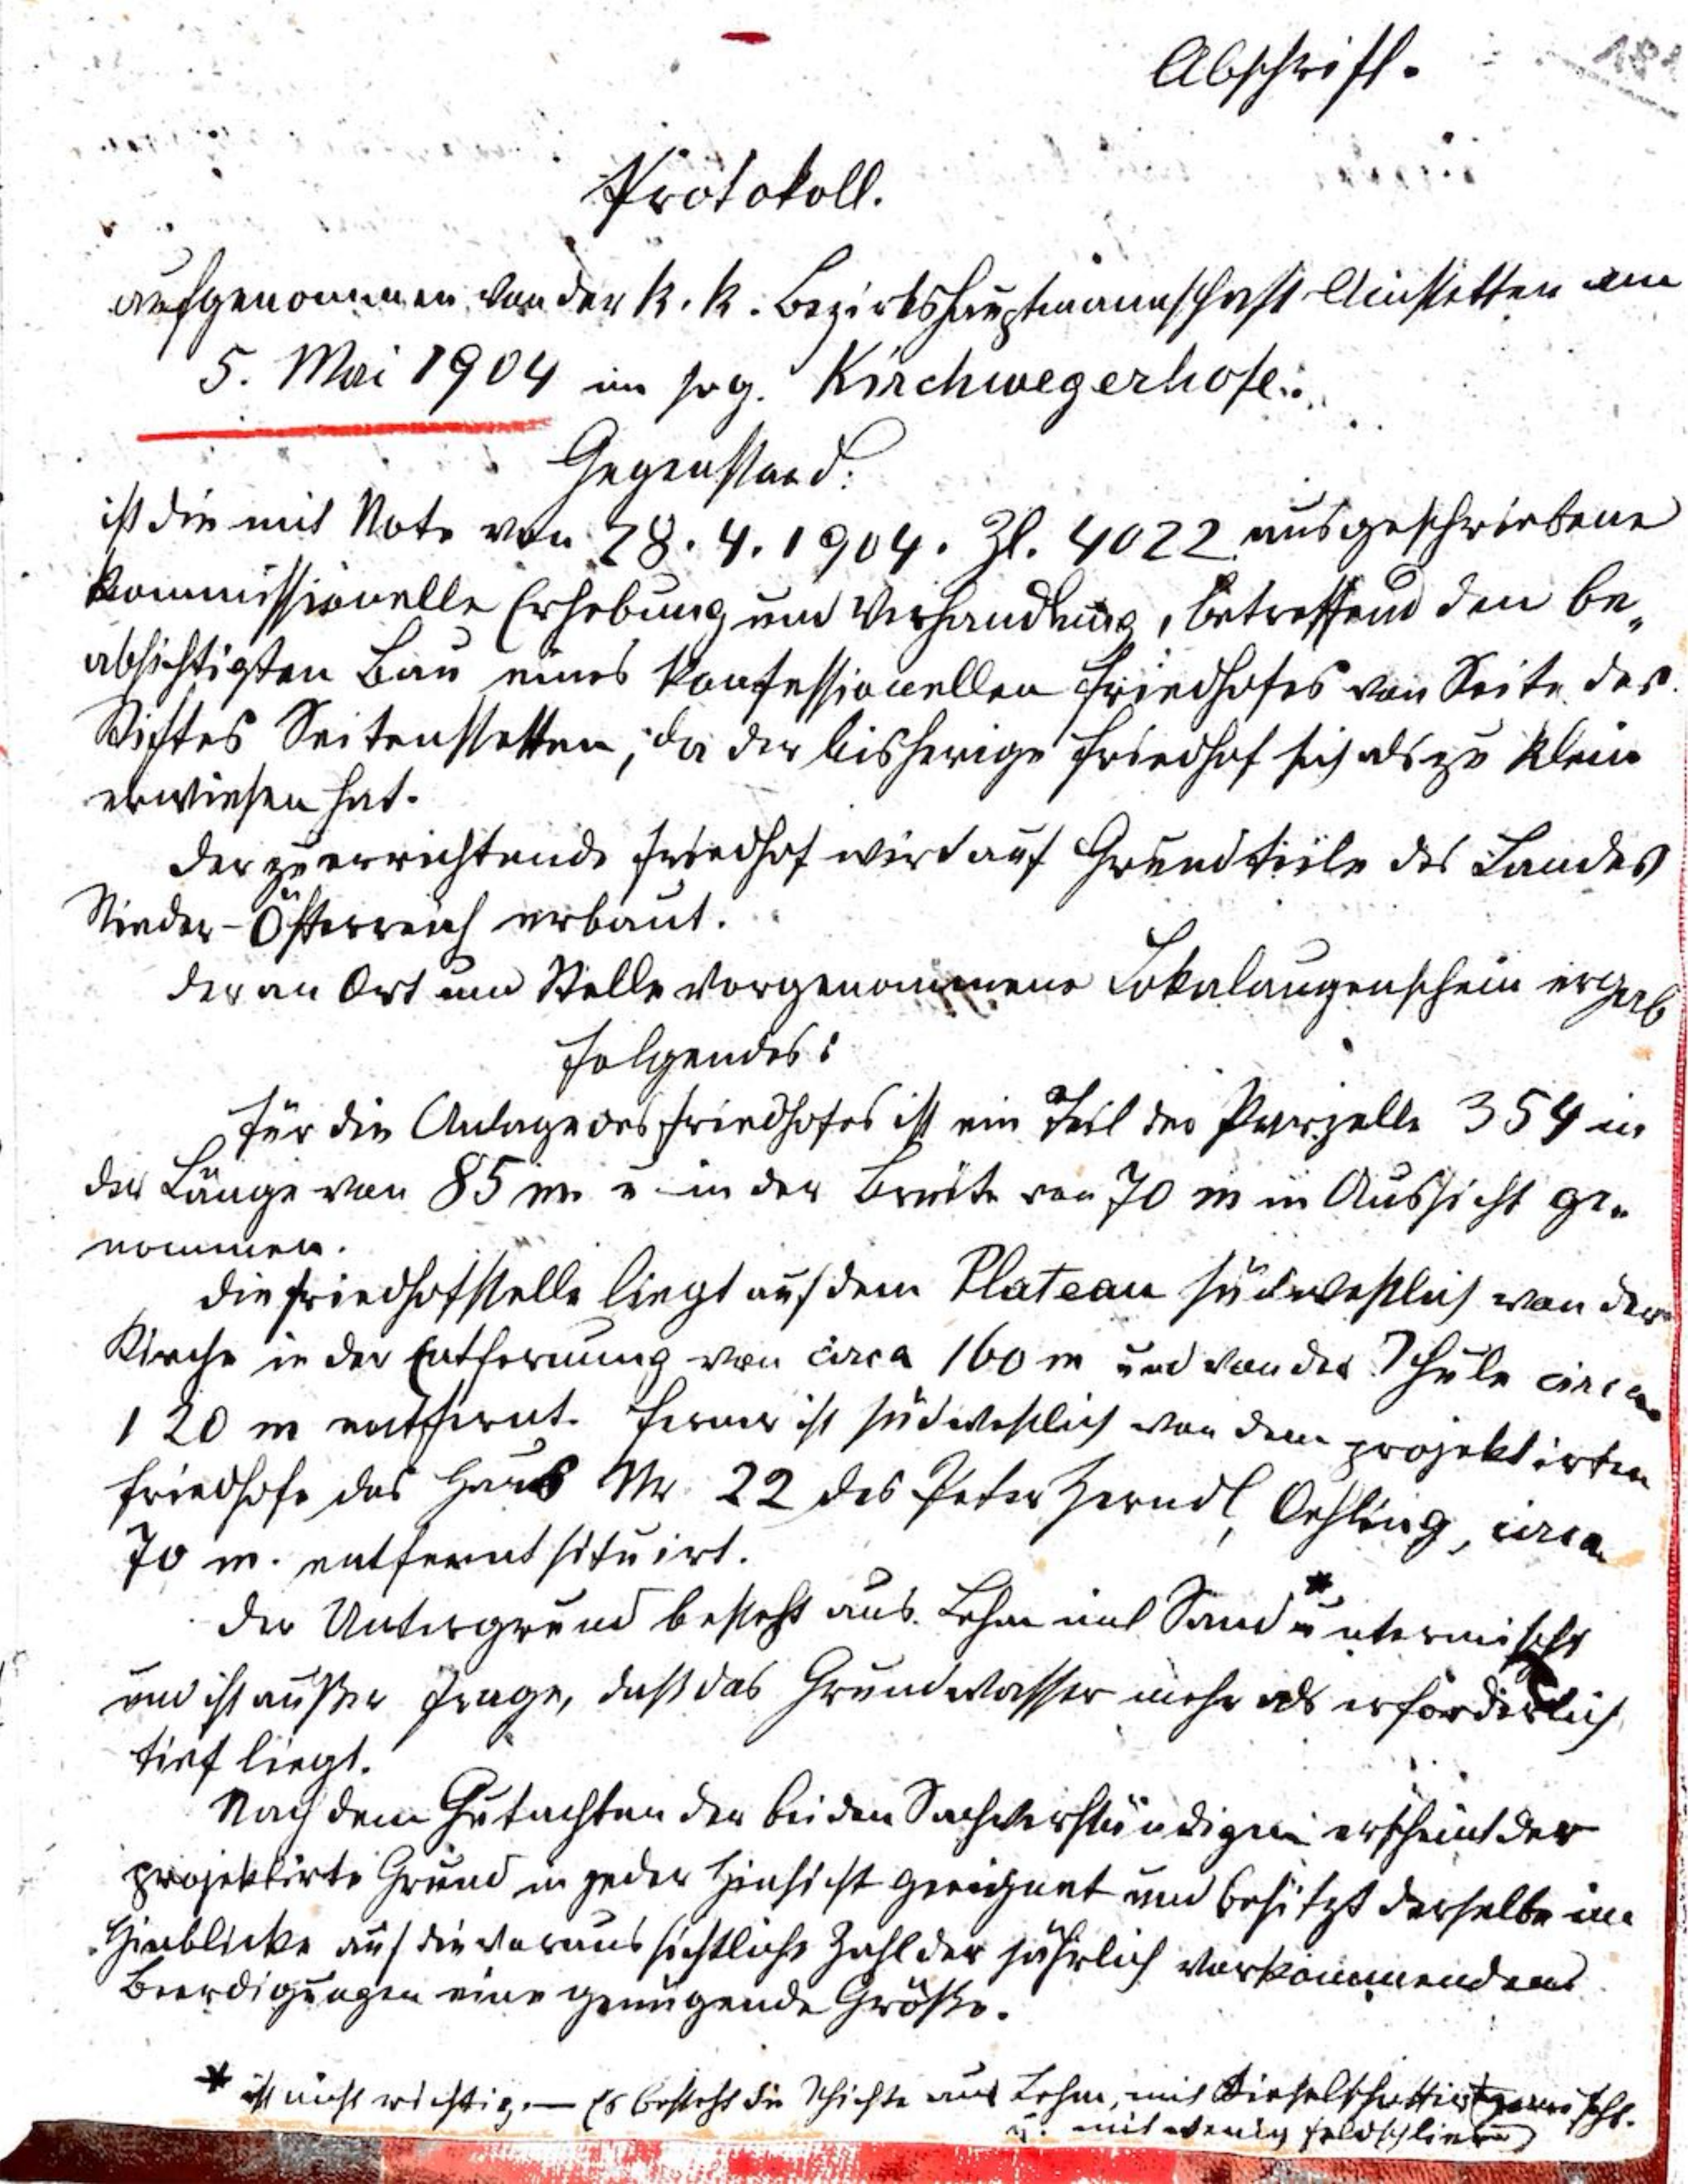 Abschrift.
Protokoll.
aufgenommen von der k. k. Bezirkshauptmannschaft Amstetten am
5. Mai 1904 im sog. Kirchwegerhofe.
Gegenstand:
ist die mit Note von 28. 4. 1904. Zl. 4022 ausgeschriebene
kommissionelle Erhebung und Verhandlung, betreffend den be„
absichtigten Bau eines konfessionellen Friedhofes von Seite des
Stiftes Seitenstetten, da der bisherige Friedhof sich als zu klein
erwiesen hat.
Der zu errichtende Friedhof wird auf Grundteile des Landes
Nieder-Österreich erbaut.
Der an Ort und Stelle vorgenommene Lokalaugenschein ergab
folgendes:
Für die Anlage des Friedhofes ist ein Teil der Parzelle 354 in
der Länge von 85 m u in der Breite von 70 m in Aussicht ge„
nommen.
Die Friedhofstelle liegt auf dem Plateau südwestlich von der
Kirche in der Entfernung von circa 160 m und von der Schule circa
120 m entfernt. Ferner ist südwestlich von dem projektirten
Friedhofe das Haus Nr 22 des Peter Zerndl, Oehling, circa
70 m. entfernt situirt.
Der Untergrund besteht aus Lehm mit Sand * untermischt
und ist außer Frage, daß das Grundwasser mehr als erforderlich
tief liegt.
Nach dem Gutachten der beiden Sachverständigen erscheint der
projektirte Grund in jeder Hinsicht geeignet und besitzt derselbe im
Hinblicke auf die voraussichtliche Zahl der jährlich vorkommenden
Beerdigungen eine genügende Größe.
* ist nicht richtig. — Es besteht die Schichte aus Lehm, mit Kieselschotter gemischt.
u. mit wenig